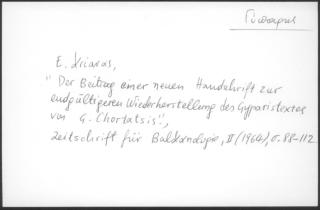 Γύπαρης
E. Kriaras,
"Der Beitrag einer neuen Handschrift zur
endgültigeren Wiederherstellung des Gyparistextes
von G. Chortatsis",
Zeitschrift für Balkanologie, II (1964), σ. 88-112